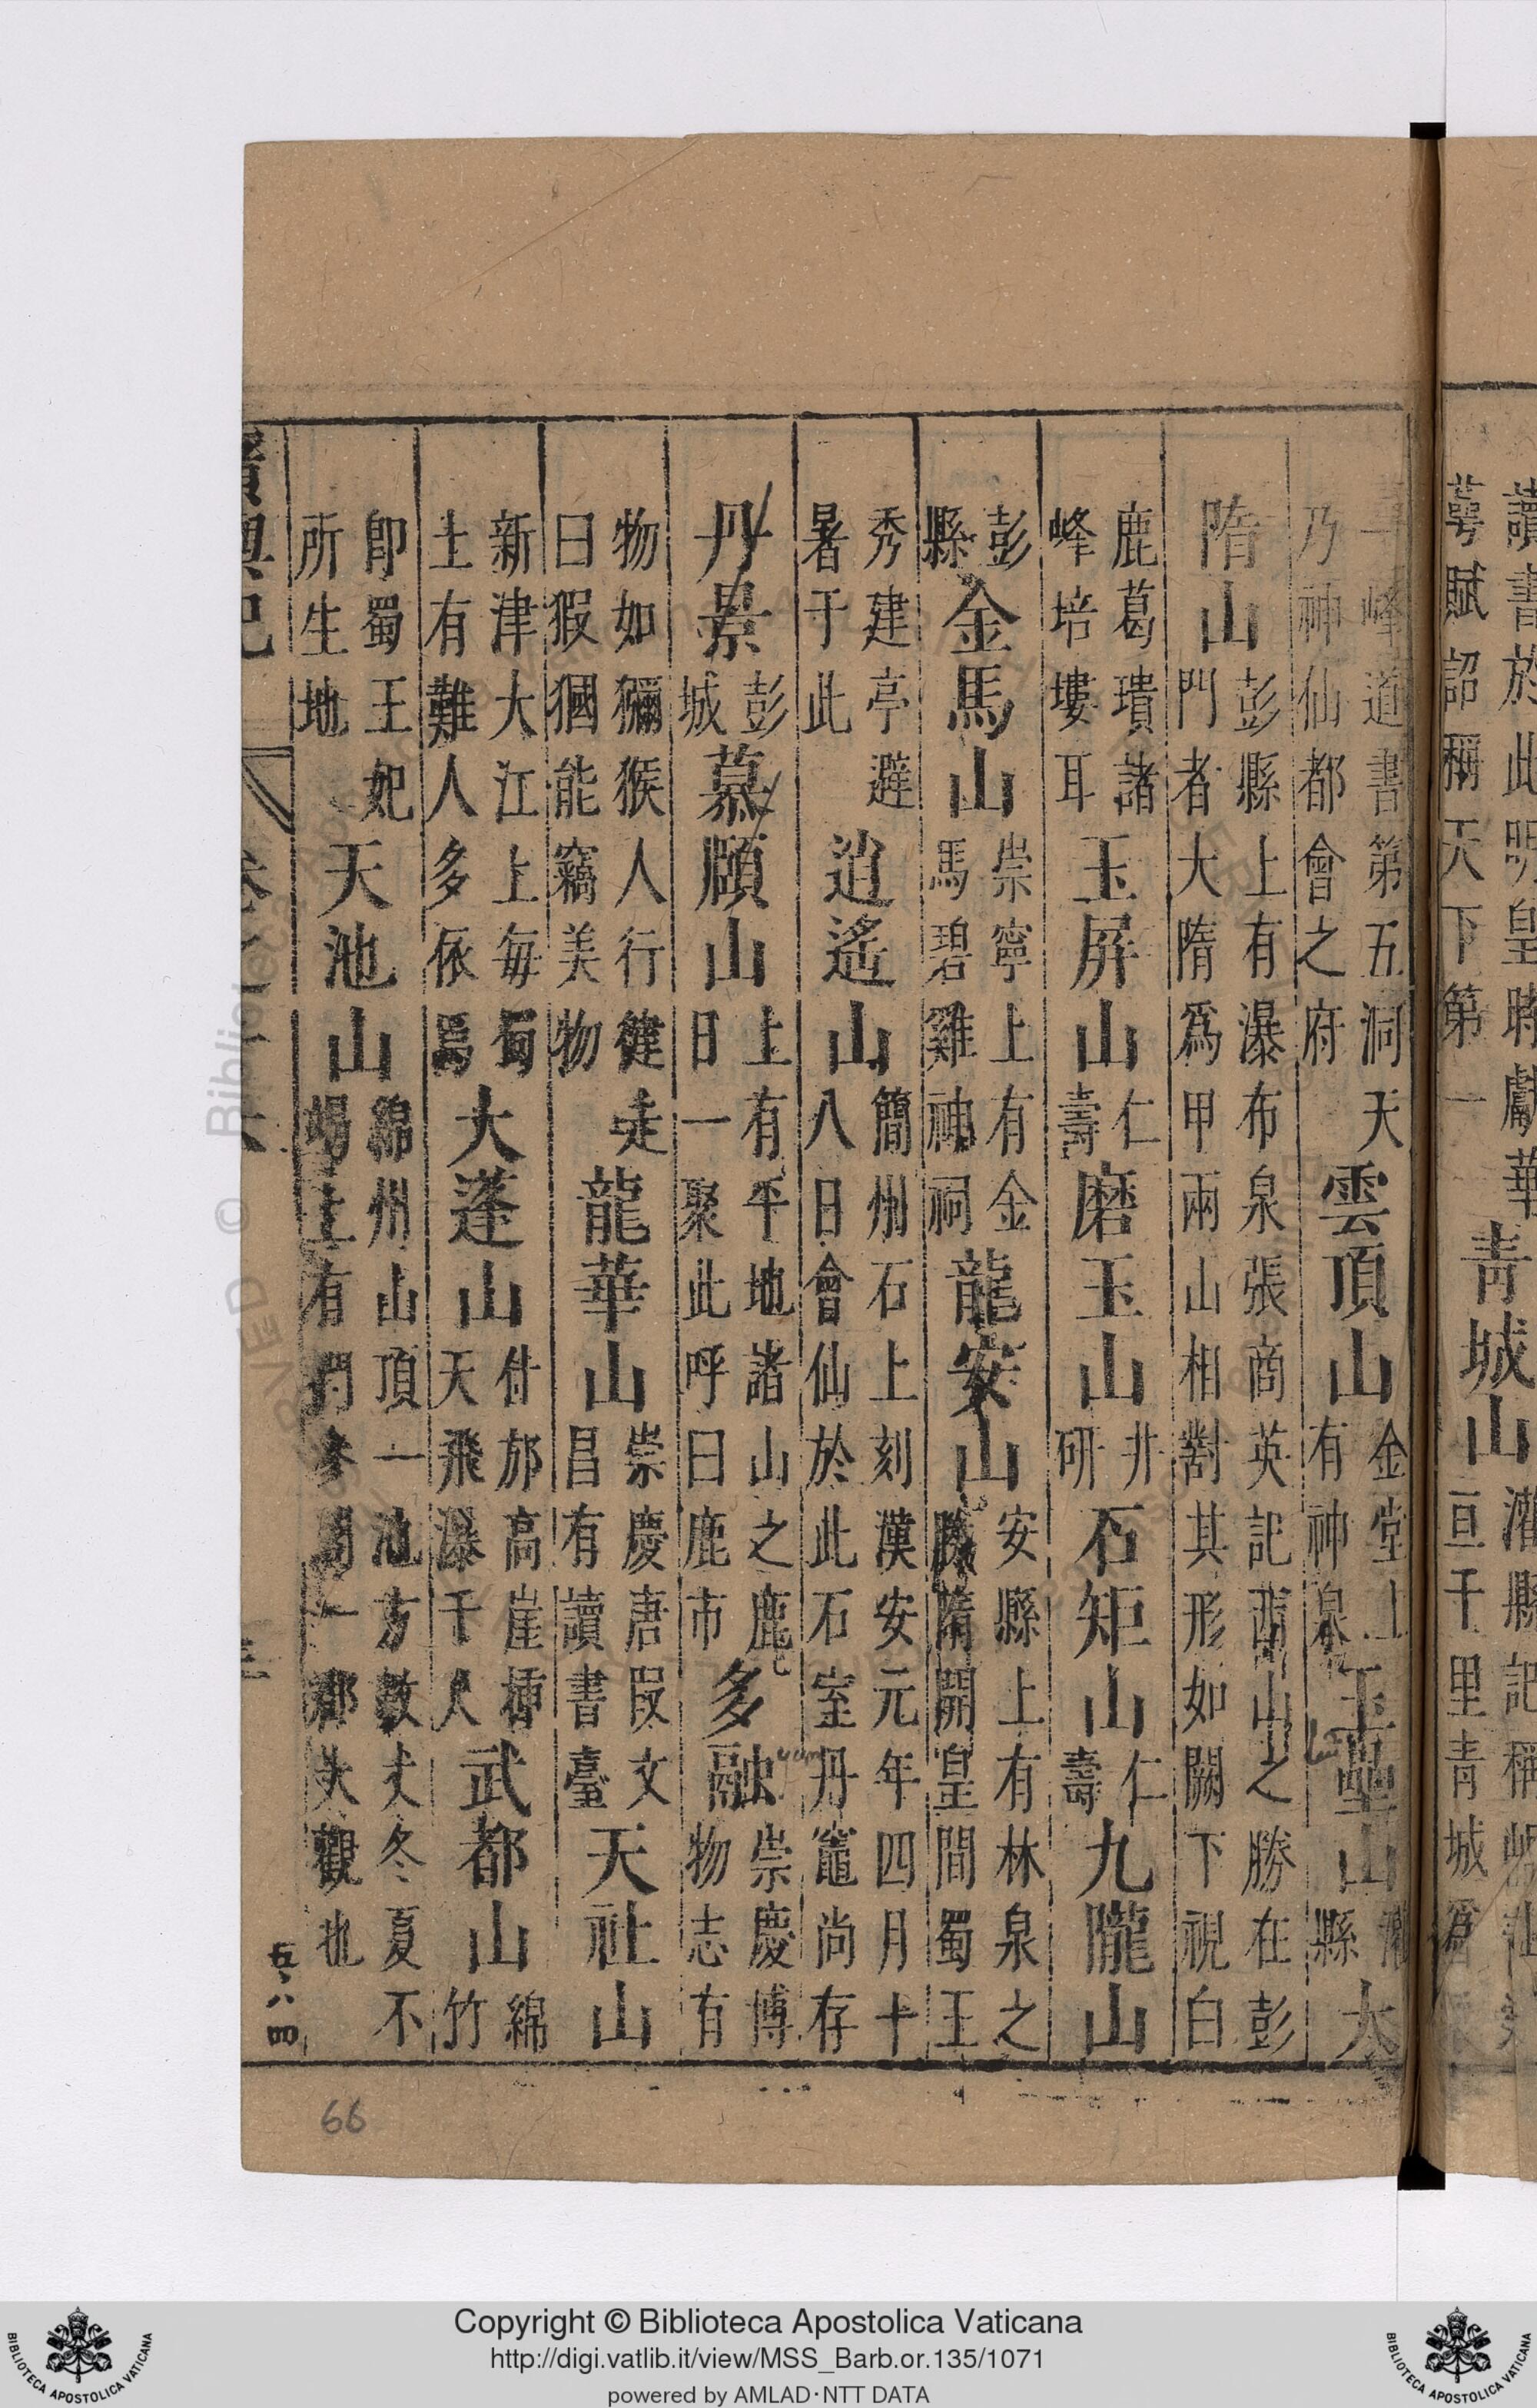 峰道書第五洞天
乃神仙都會之府
雲頂山
金堂上
有神泉
玉壘山
灌
縣
大
隋山
彭縣上有瀑布泉張商英記西山之勝在彭
門者大隋爲甲兩山相對其形如闕下視白
鹿葛璝諸
峰培塿耳
玉屏山
仁
壽
磨玉山
井
研
石矩山
仁
壽
九隴山
彭
縣
金馬山
崇寧上有金
馬碧雞神祠
龍安山
安縣上有林泉之
勝隋開皇間蜀王
秀建亭避
暑于此
逍遙山
簡州石上刻漢安元年四月十
八日會仙於此石室丹竈尚存
丹景
彭
城
慕頤山
上有平地諸山之鹿
日一聚此呼曰鹿市
多融
崇慶博
物志有
物如獼猴人行健走
曰猳猢能竊美物
龍華山
崇慶唐叚文
昌有讀書臺
天社山
新津大江上每蜀
土有難人多依焉
大蓬山
什邡高崖插
天飛瀑千人
武都山
綿
竹
即蜀王妃
所生地
天池山
綿州山頂一池方數丈冬夏不
竭上有
一郡大觀也
卷之
五八四
66
讀書於此明皇時獻華
萼賦詔稱天下第一
青城山
灌縣記稱岷山
亘千里青城爲
Copyright © Biblioteca Apostolica Vaticana
http://digi.vatlib.it/view/MSS_Barb.or.135/1071
powered by AMLAD·NTT DATA
BIBLIOTECA APOSTOLICA VATICANA
BIBLIOTECA APOSTOLICA VATICANA